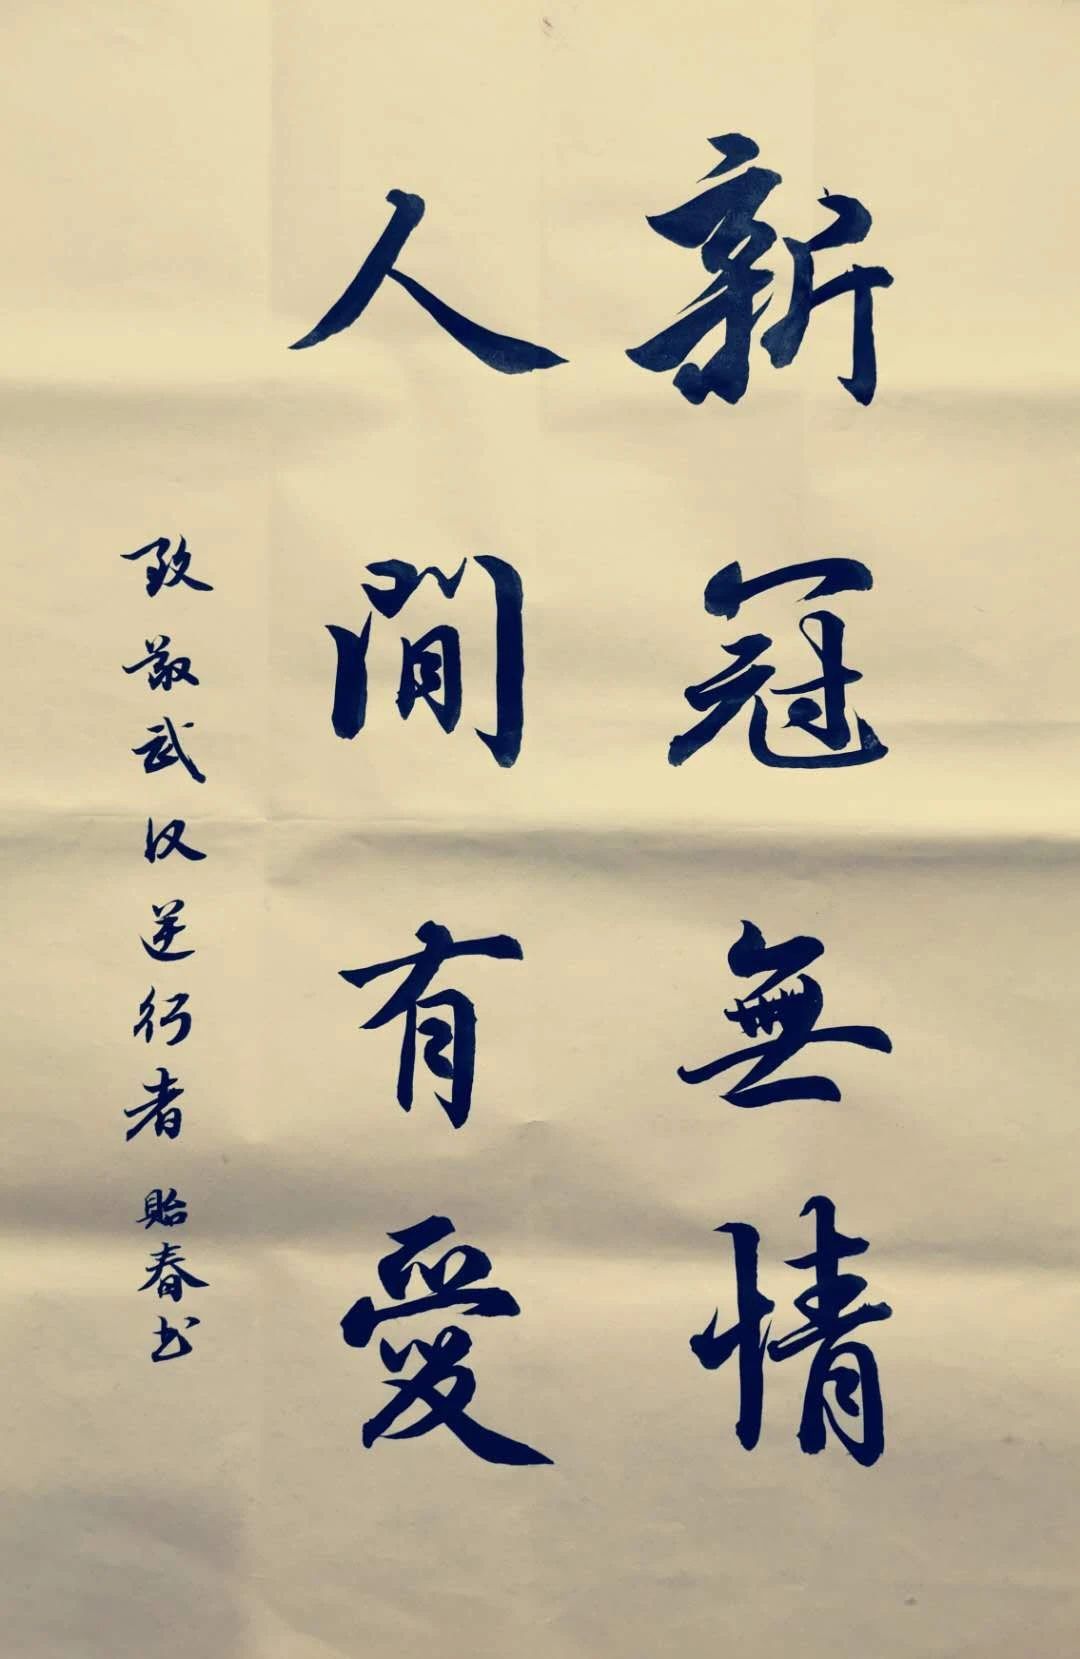 新冠無情
人間有愛
致敬武汉逆行者 貽春书